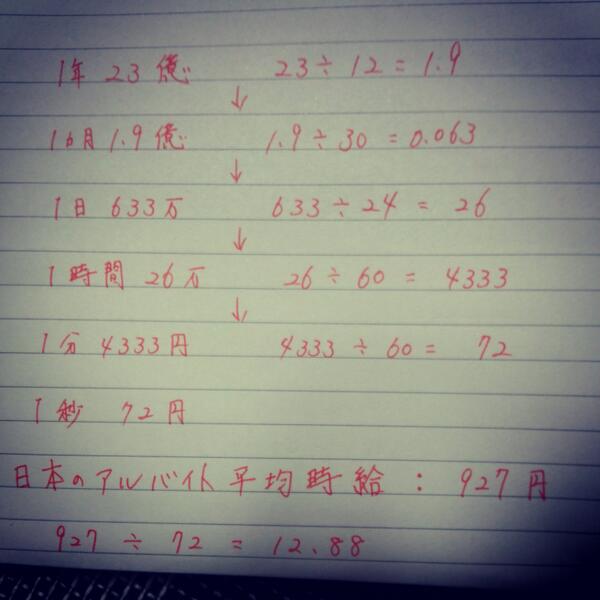 1年 23億 23÷12=1.9
↓
1ヵ月 1.9億 1.9÷30=0.063
↓
1日 633万 633÷24=26
↓
1時間 26万 26÷60=4333
↓
1分 4333円 4333÷60=72
1秒 72円
日本のアルバイト平均時給:927円
927÷72=12.88